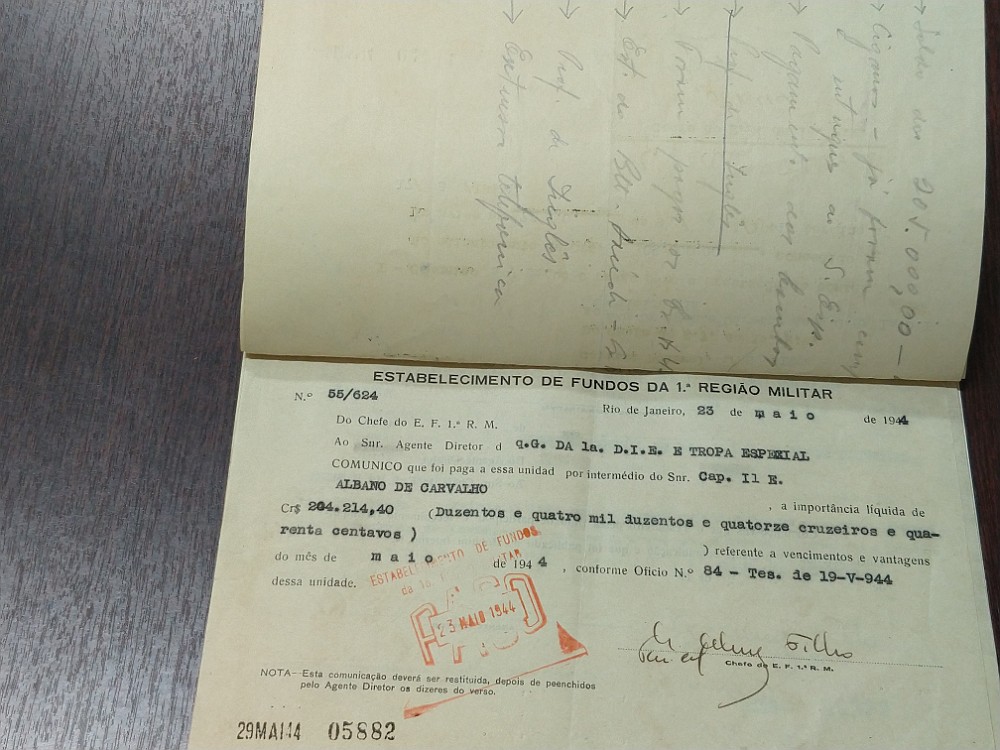 → Saldo dos 205.000,00 –
→ Ciganos – já foram
entregues ao S. Esp.
→ Pagamento dos
→ Prof. de Inglês
→ Foram pagos os
→ Est. do Btl. Saúde –
→ Prof. de Inglês
→ Extensão telefonica
ESTABELECIMENTO DE FUNDOS DA 1.ª REGIÃO MILITAR
N.º 55/624
Rio de Janeiro, 23 de maio de 1944
Do Chefe do E. F. 1.ª R. M.
Ao Snr. Agente Diretor d Q.G. DA 1a. D.I.E. E TROPA ESPEXIAL
COMUNICO que foi paga a essa unidad por intermédio do Snr. Cap. Il E.
ALBANO DE CARVALHO , a importância líquida de
Cr$ 204.214,40 (Duzentos e quatro mil duzentos e quatorze cruzeiros e qua-
renta centavos ) ) referente a vencimentos e vantagens
do mês de maio de 1944 , conforme Oficio N.º 84 – Tes. de 19-V-944
dessa unidade.
ESTABELECIMENTO DE FUNDOS
da 1a.
PAGO
23 MAIO 1944
Filho
Chefe do E. F. 1.ª R. M.
NOTA – Esta comunicação deverá ser restituída, depois de peenchidos
pelo Agente Diretor os dizeres do verso.
29MAI44 05882